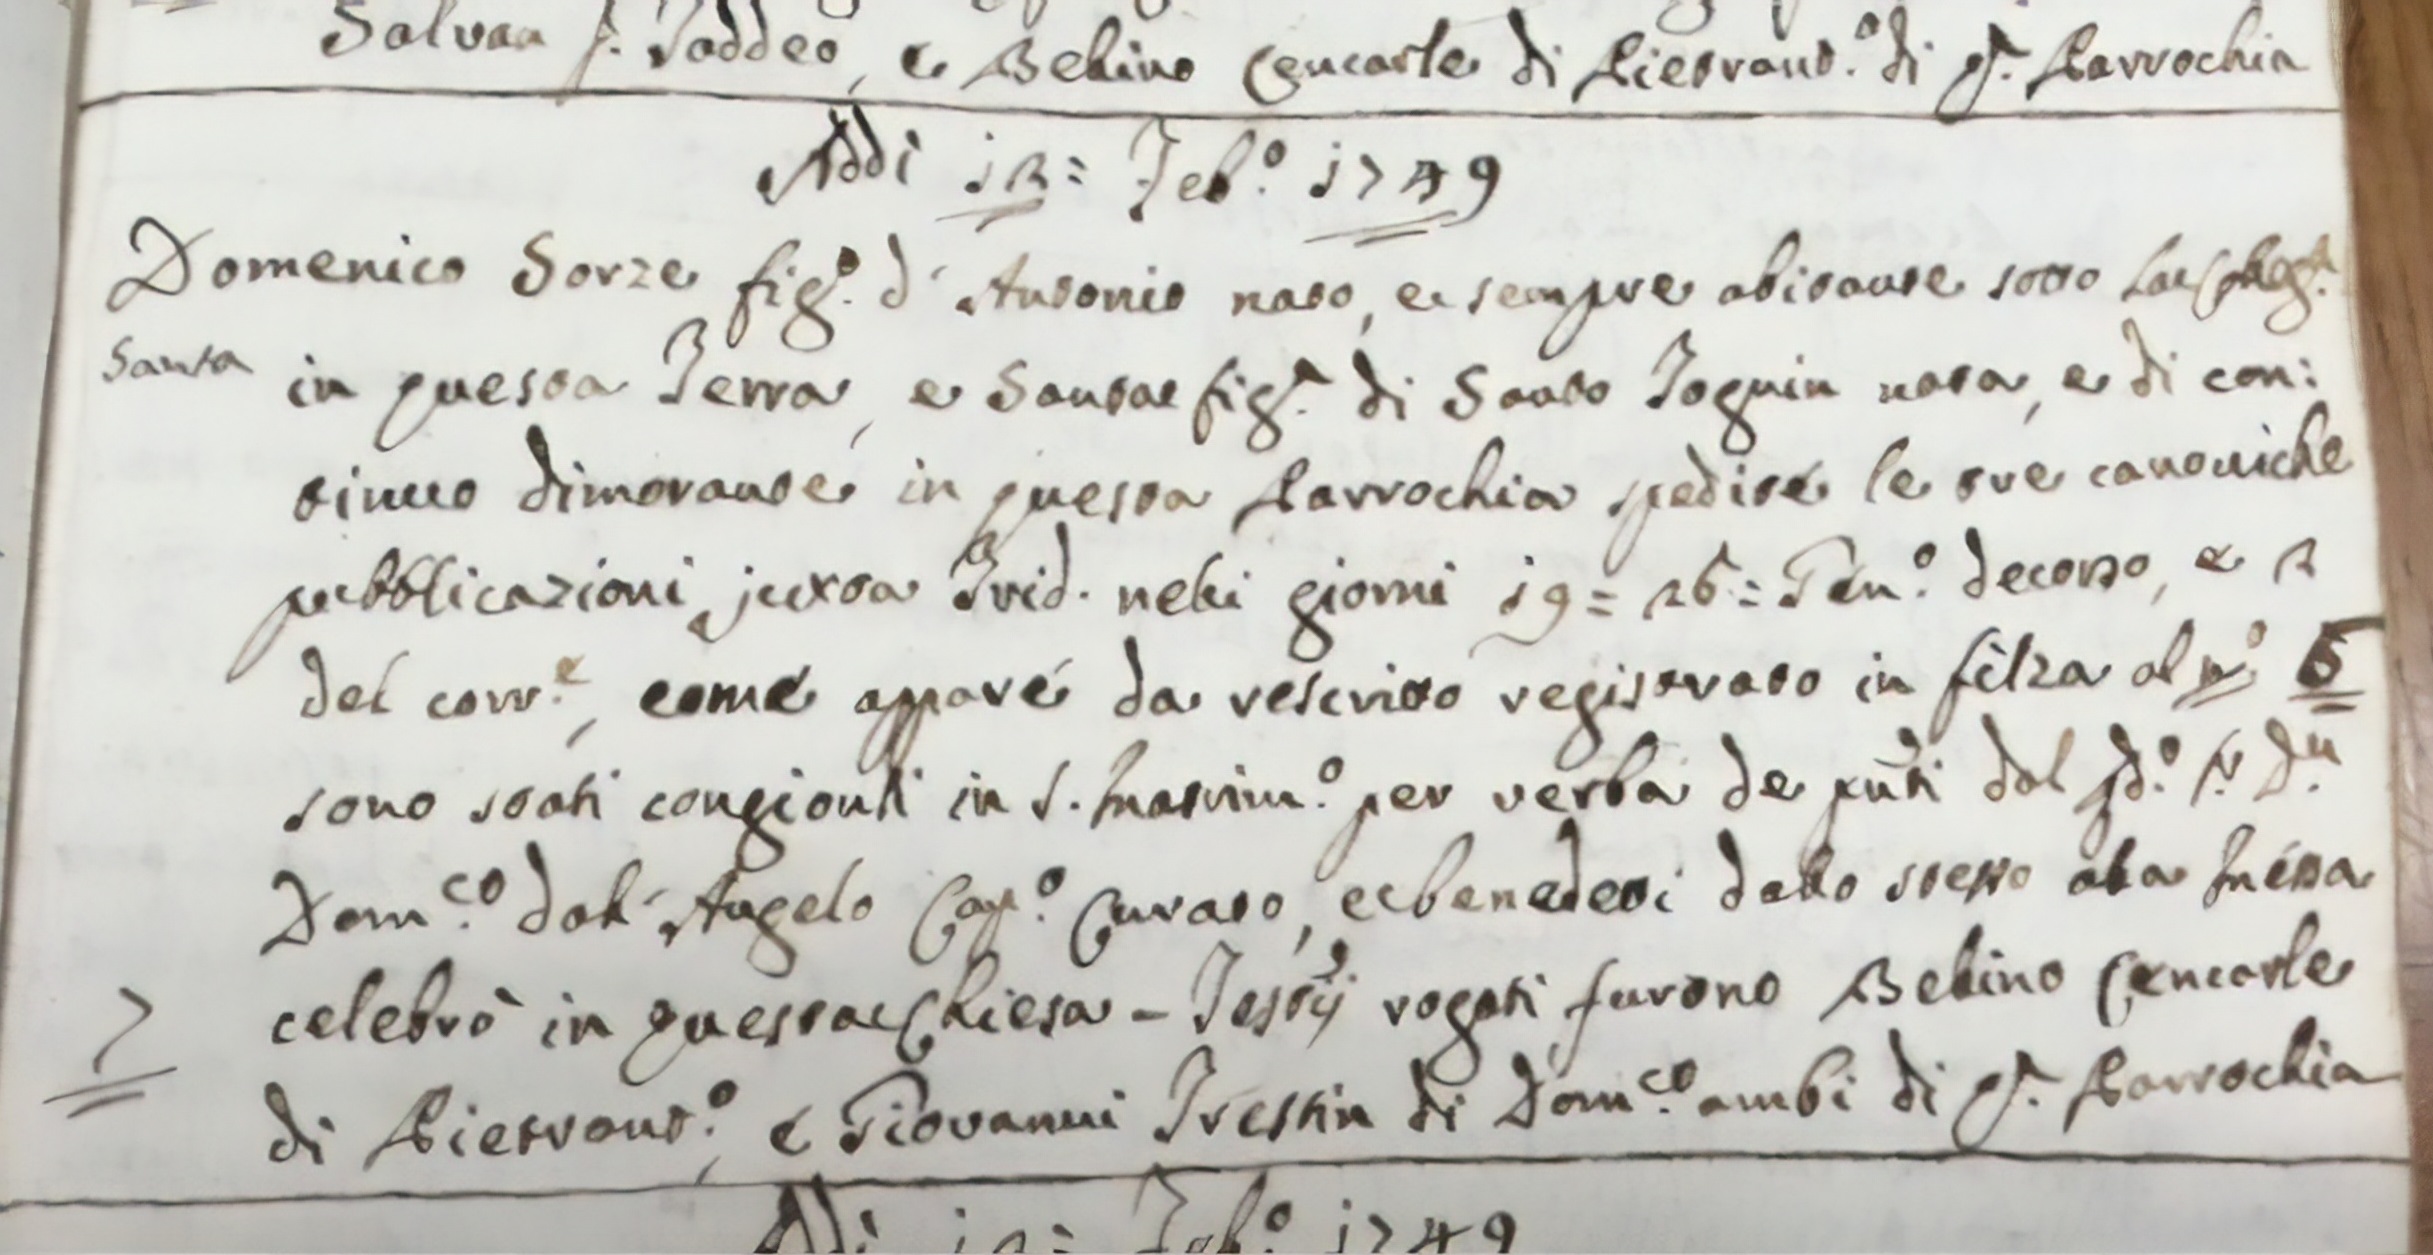 Salvan q. Taddeo, e Bellino Cencarle di Pietrant.º di q.ª Parrochia
Addì 12= Feb.º 1749
Domenico Sorze fig.º d'Antonio nato, e sempre abitante sotto
Santa
in questa Terra, e Santa fig.ª di Santo Toguin nata, e di con:
tinuo dimorante in questa Parrochia spedite le tre canoniche
pubblicazioni juxta Trid. nelli giorni 19= 26= Gen.º decorso, e 2
del corr.e, come appare da rescritto registrato in filza al n.º 5
sono stati congionti in S. Matrim.º per verba de pnti dal sd.º R. Dn.
Dom.co dall'Angelo Cap.º Curato, e benedetti dallo stesso alla Messa
celebrò in questa Chiesa - Testij rogati furono Bellino Cencarle
7
di Pietrant.º, e Giovanni Trestin di Dom.co ambi di q.ª Parrochia
Addì 12= Feb.º 1749